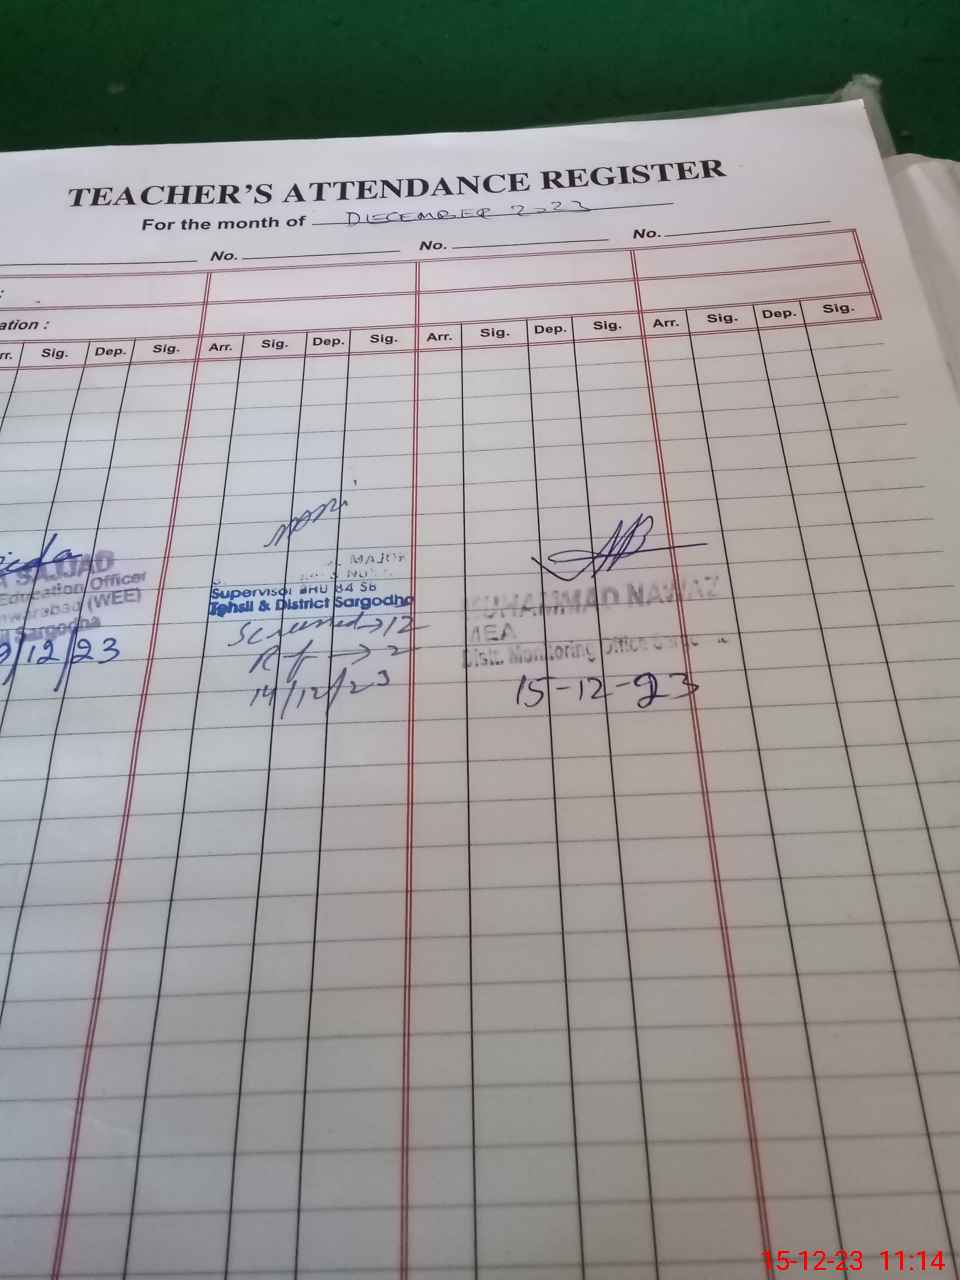 TEACHER'S ATTENDANCE REGISTER
For the month of DIECEMBER 2023
No. No. No.
:
ation :
rr. Sig. Dep. Sig. Arr. Sig. Dep. Sig. Arr. Sig. Dep. Sig. Arr. Sig. Dep. Sig.
SAJJAD
Education Officer
(WEE)
Sargodha
/12/23
MAJOR
Supervisor BHU 84 SB
Tehsil & District Sargodha
Screened → 12
Rf → 2
14/12/23
MUHAMMAD NAWAZ
MEA
Distt. Monitoring Office
15-12-23
15-12-23 11:14